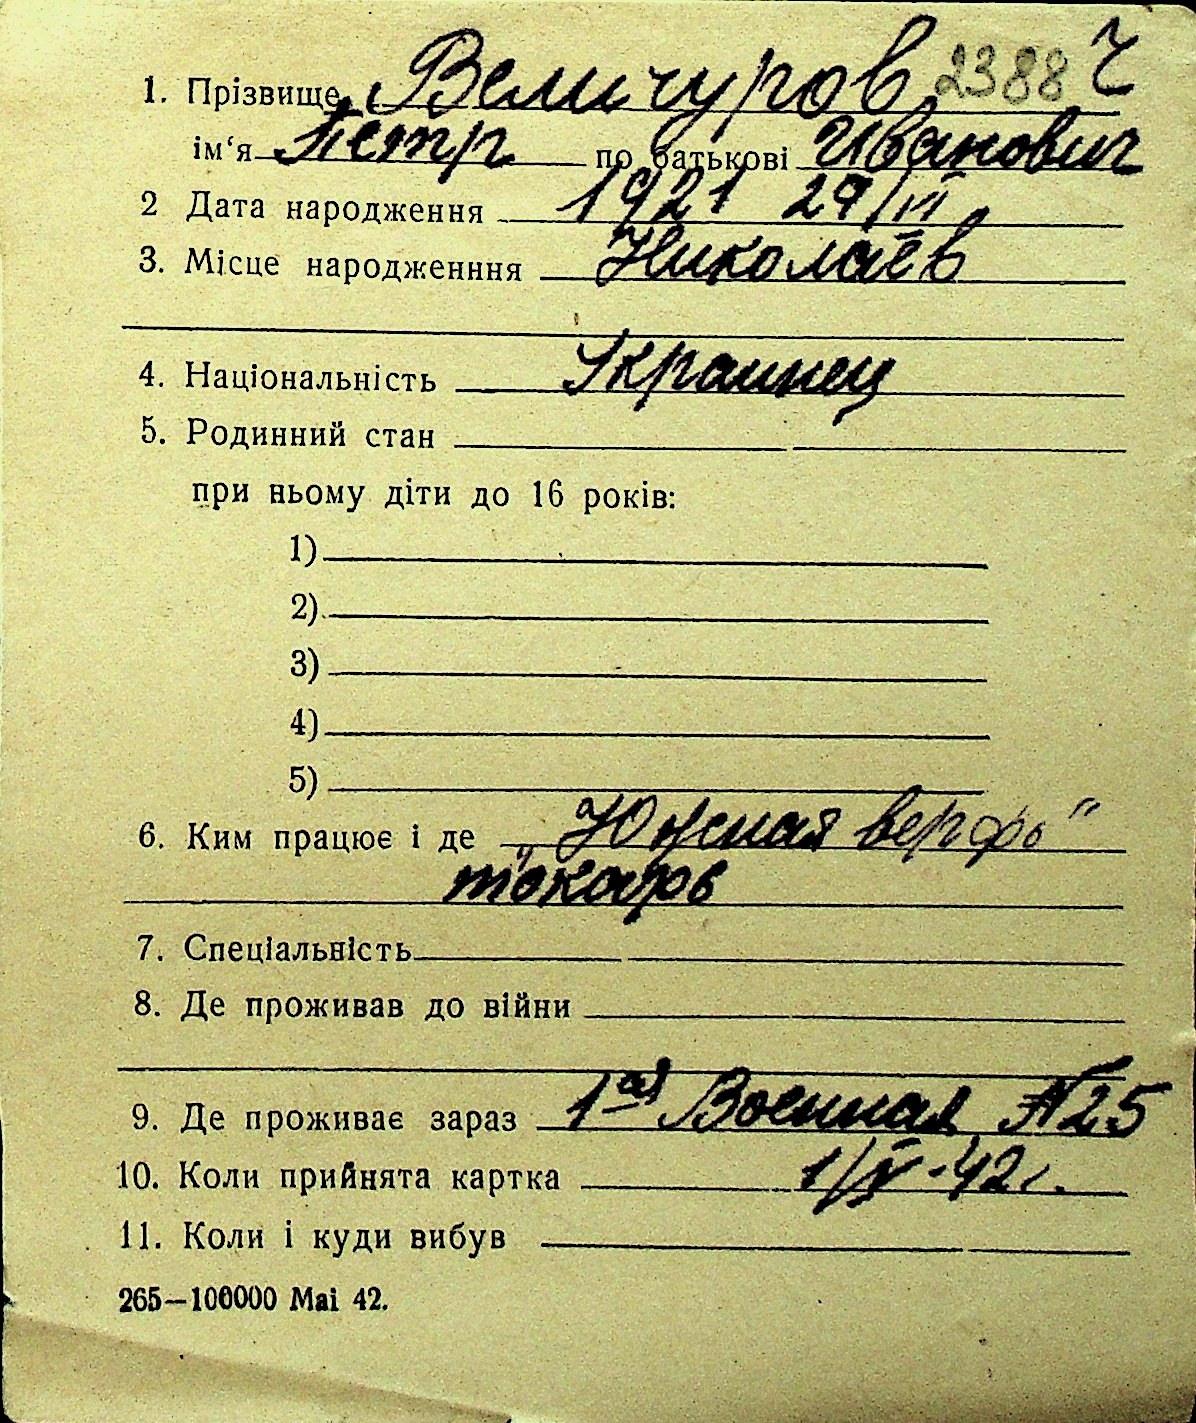 1. Прізвище Величуров 2388 Ч
ім‘я Петр по батькові Иванович
2 Дата народження 1921 29/VI
3. Місце народженння Николаев
4. Національність Украинец
5. Родинний стан
при ньому діти до 16 років:
1)
2)
3)
4)
5)
6. Ким працює і де „Южная верфь"
токарь
7. Спеціальність
8. Де проживав до війни
9. Де проживає зараз 1ая Военная №25
10. Коли прийнята картка 1/V-42г.
11. Коли і куди вибув
265—100000 Mai 42.